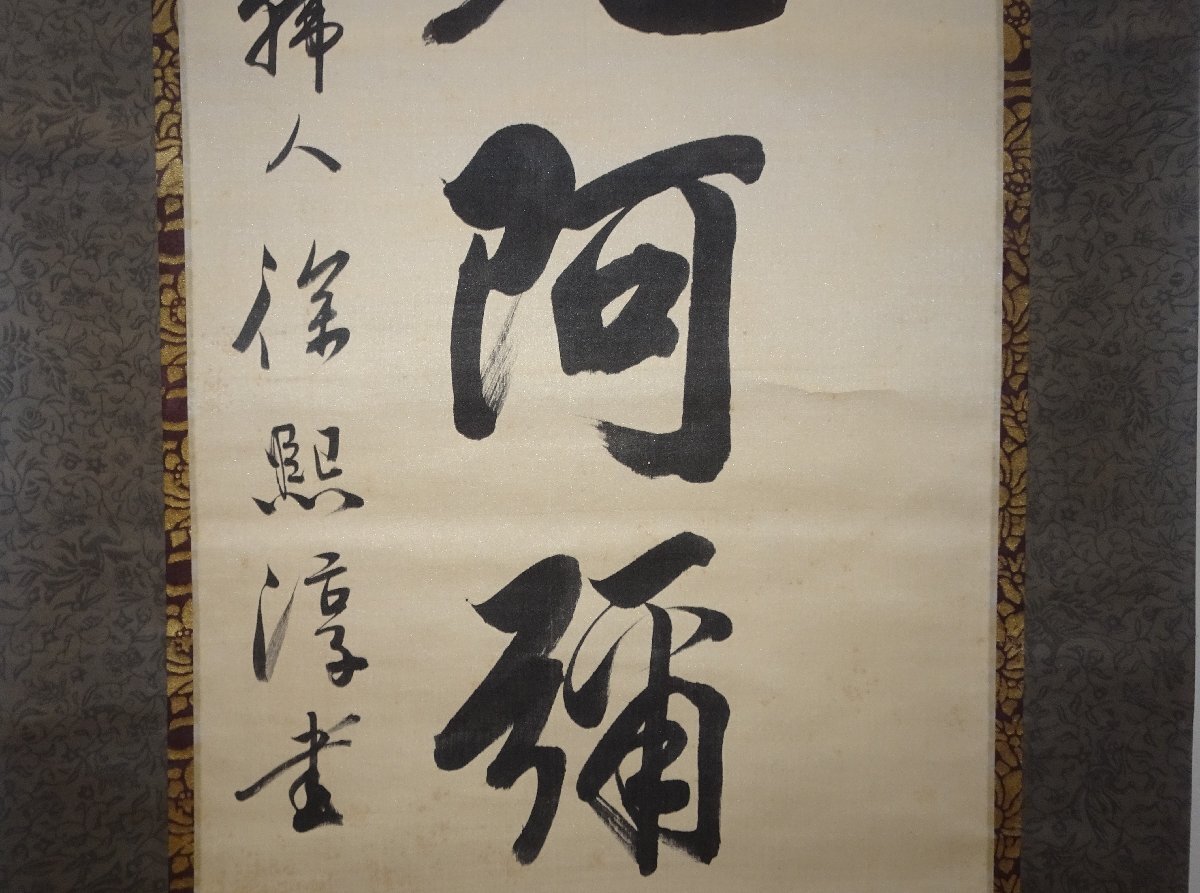 阿彌
人徐熙淳書